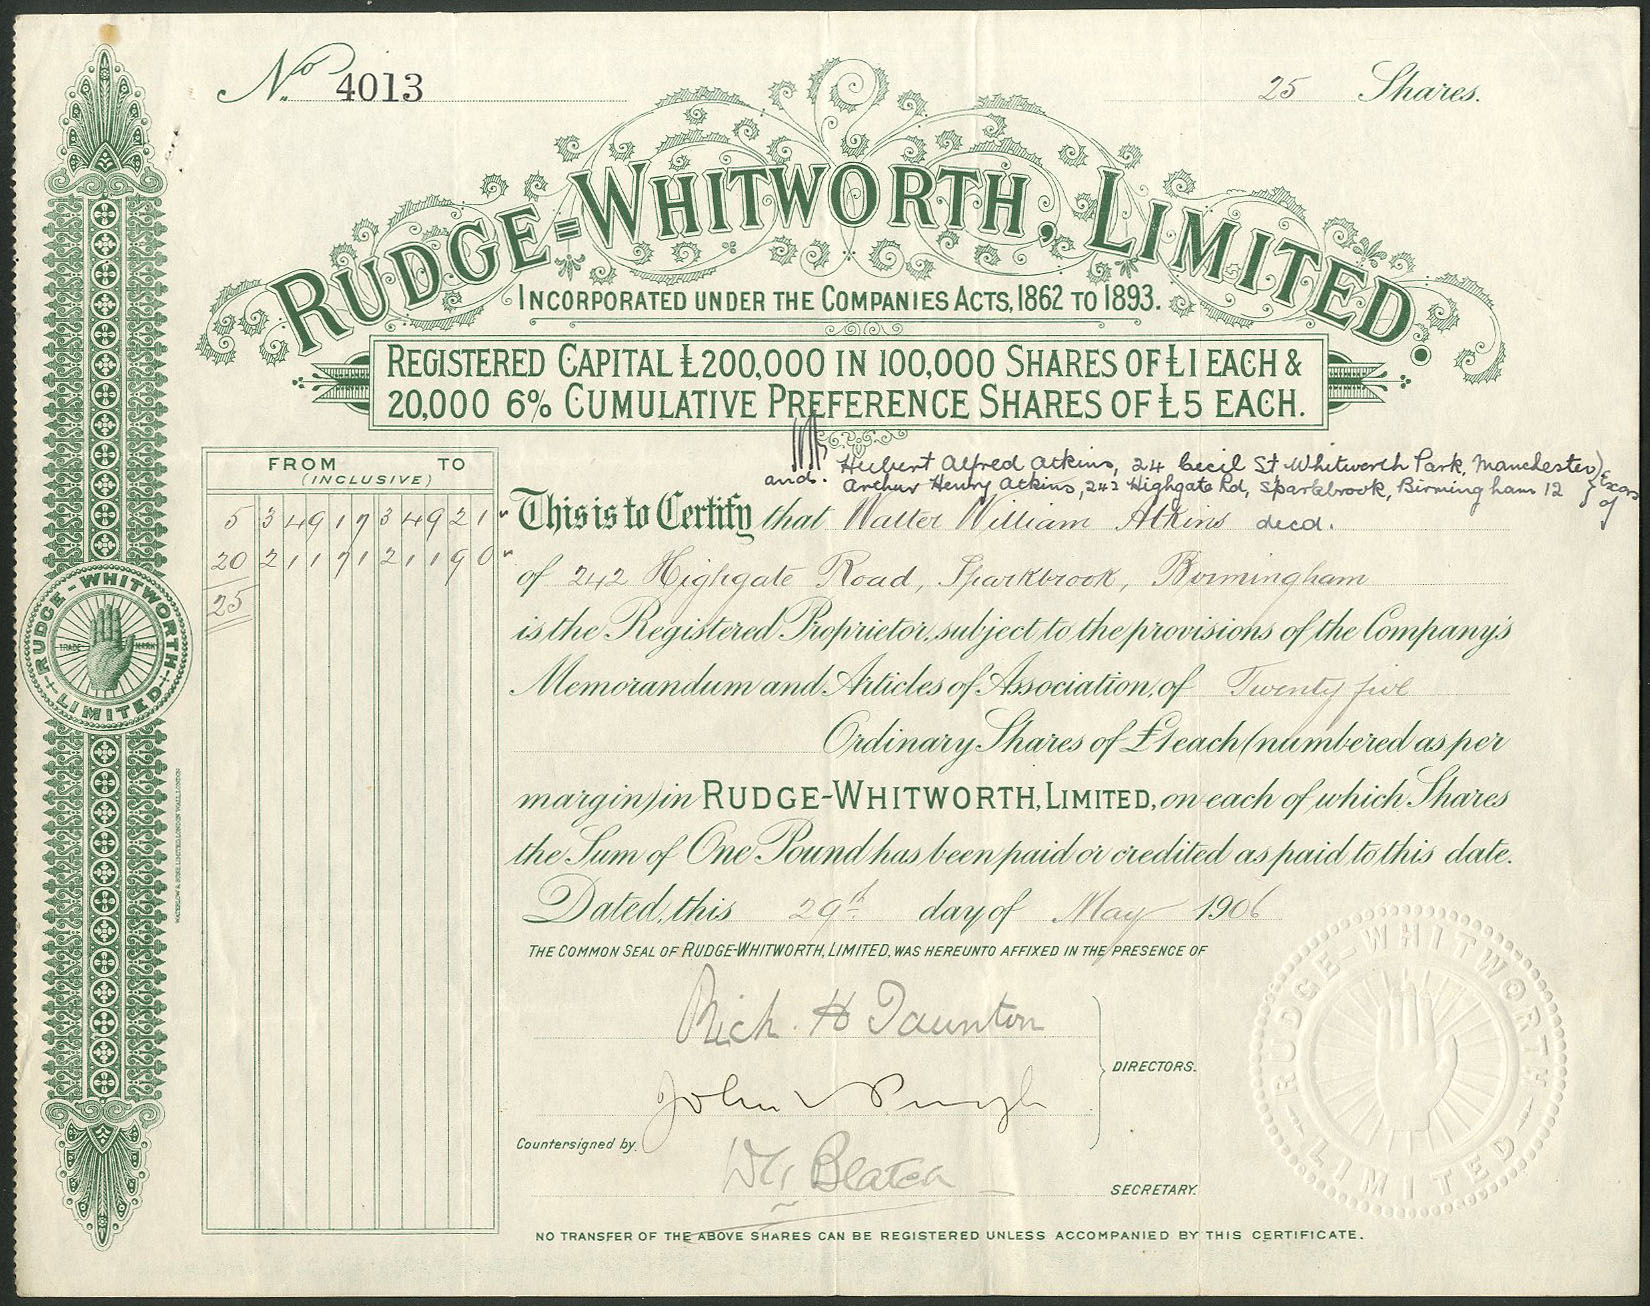 No. 4013
25 Shares.
RUDGE=WHITWORTH, LIMITED.
INCORPORATED UNDER THE COMPANIES ACTS, 1862 TO 1893.
REGISTERED CAPITAL £200,000 IN 100,000 SHARES OF £1 EACH &
20,000 6% CUMULATIVE PREFERENCE SHARES OF £5 EACH.
FROM TO
(INCLUSIVE)
5 34917 34921
20 21171 21190
25
Herbert Alfred Atkins, 24 Cecil St Whitworth Park, Manchester
and Arthur Henry Atkins, 242 Highgate Rd, Sparkbrook, Birmingham 12
Exors of
This is to Certify that Walter William Atkins decd.
of 242 Highgate Road, Sparkbrook, Birmingham
is the Registered Proprietor, subject to the provisions of the Company's
Memorandum and Articles of Association, of Twenty five
Ordinary Shares of £1 each (numbered as per
margin) in RUDGE-WHITWORTH, LIMITED, on each of which Shares
the Sum of One Pound has been paid or credited as paid to this date.
Dated, this 29th day of May 1906
THE COMMON SEAL OF RUDGE-WHITWORTH, LIMITED, WAS HEREUNTO AFFIXED IN THE PRESENCE OF
Rich. H Taunton
John V Pugh
DIRECTORS.
Countersigned by
Blatch
SECRETARY.
NO TRANSFER OF THE ABOVE SHARES CAN BE REGISTERED UNLESS ACCOMPANIED BY THIS CERTIFICATE.
RUDGE-WHITWORTH
LIMITED
TRADE MARK
WATERLOW & SONS LIMITED, LONDON WALL, LONDON
RUDGE-WHITWORTH
LIMITED